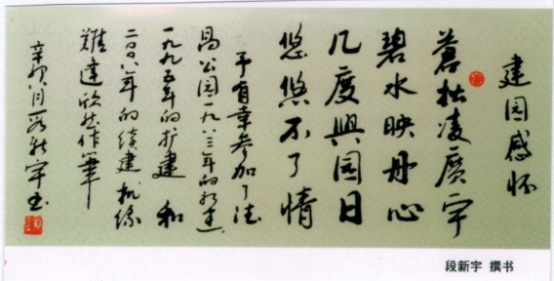 建园感怀
蒼松凌廣宇
碧水映丹心
几度興园日
悠悠不了情
予有幸参加了
公园一九八三年的建
一九九五年的扩建 和
二〇〇八年的续建 机缘
难逢欣然作笔
辛卯月段新宇书
段新宇 撰书